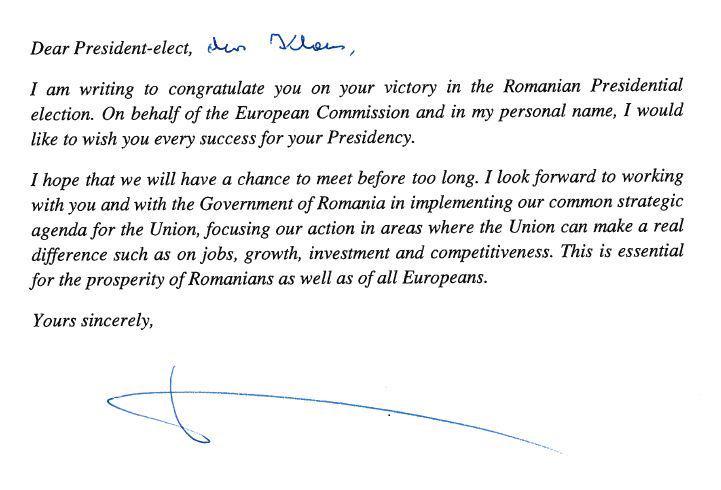 Dear President-elect, dear Klaus,
I am writing to congratulate you on your victory in the Romanian Presidential
election. On behalf of the European Commission and in my personal name, I would
like to wish you every success for your Presidency.
I hope that we will have a chance to meet before too long. I look forward to working
with you and with the Government of Romania in implementing our common strategic
agenda for the Union, focusing our action in areas where the Union can make a real
difference such as on jobs, growth, investment and competitiveness. This is essential
for the prosperity of Romanians as well as of all Europeans.
Yours sincerely,